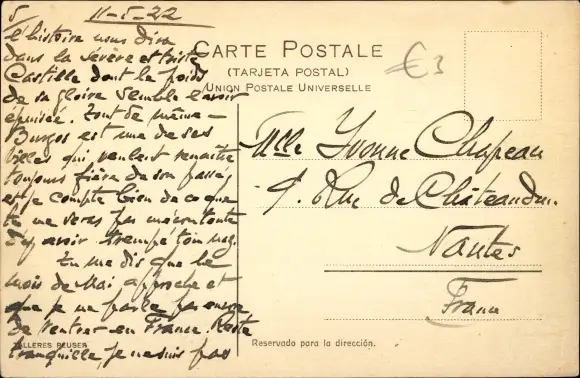 5   11-5-22
l'histoire nous dira
dans la sévère et triste
Castille dont le poids
de sa gloire semble l'avoir
épuisée. Tout de même
Burgos est une de ses
villes qui veulent renaître
toujours fière de son passé
et je compte bien de ce que
tu ne seras pas mécontente
d'y avoir trempé ton nez.
Tu me dis que le
mois de Mai approche et
que je ne parle pas encore
de rentrer en France. Reste
tranquille, je ne suis pas
CARTE POSTALE
(TARJETA POSTAL)
UNION POSTALE UNIVERSELLE
€3
Mlle Yvonne Chapeau
9. Rue de Châteaudun.
Nantes
France
TALLERES REUSER
Reservado para la dirección.